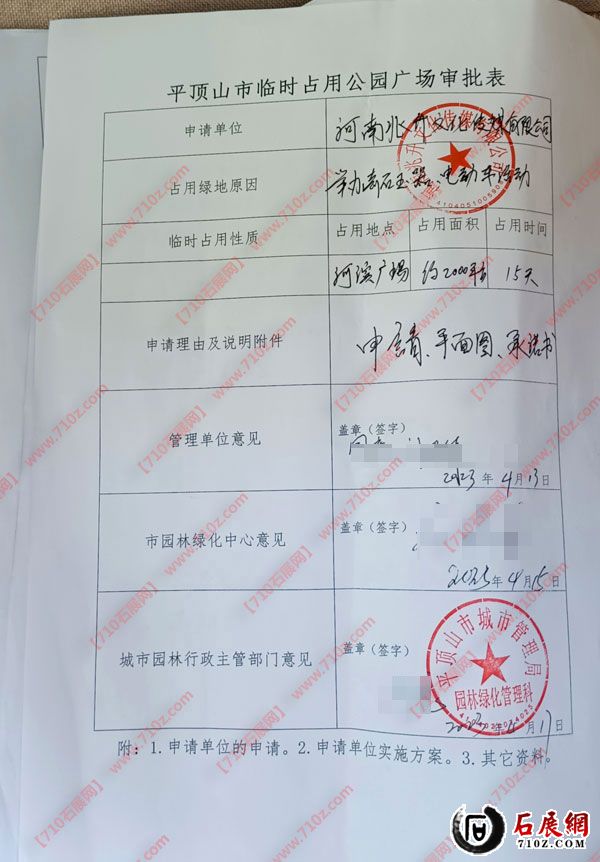 平顶山市临时占用公园广场审批表
申请单位
河南北开文化传媒有限公司
占用绿地原因
举办奇石玉器、电动车活动
临时占用性质
占用地点 占用面积 占用时间
河滨广场 约2000平方 15天
申请理由及说明附件
申请、平面图、承诺书
管理单位意见
盖章（签字）
2023年4月13日
市园林绿化中心意见
盖章（签字）
年4月15日
城市园林行政主管部门意见
盖章（签字）
平顶山市城市管理局
园林绿化管理科
2023年4月17日
附：1.申请单位的申请。2.申请单位实施方案。3.其它资料。
【710石展网】www.710z.com
石展網
710Z.COM